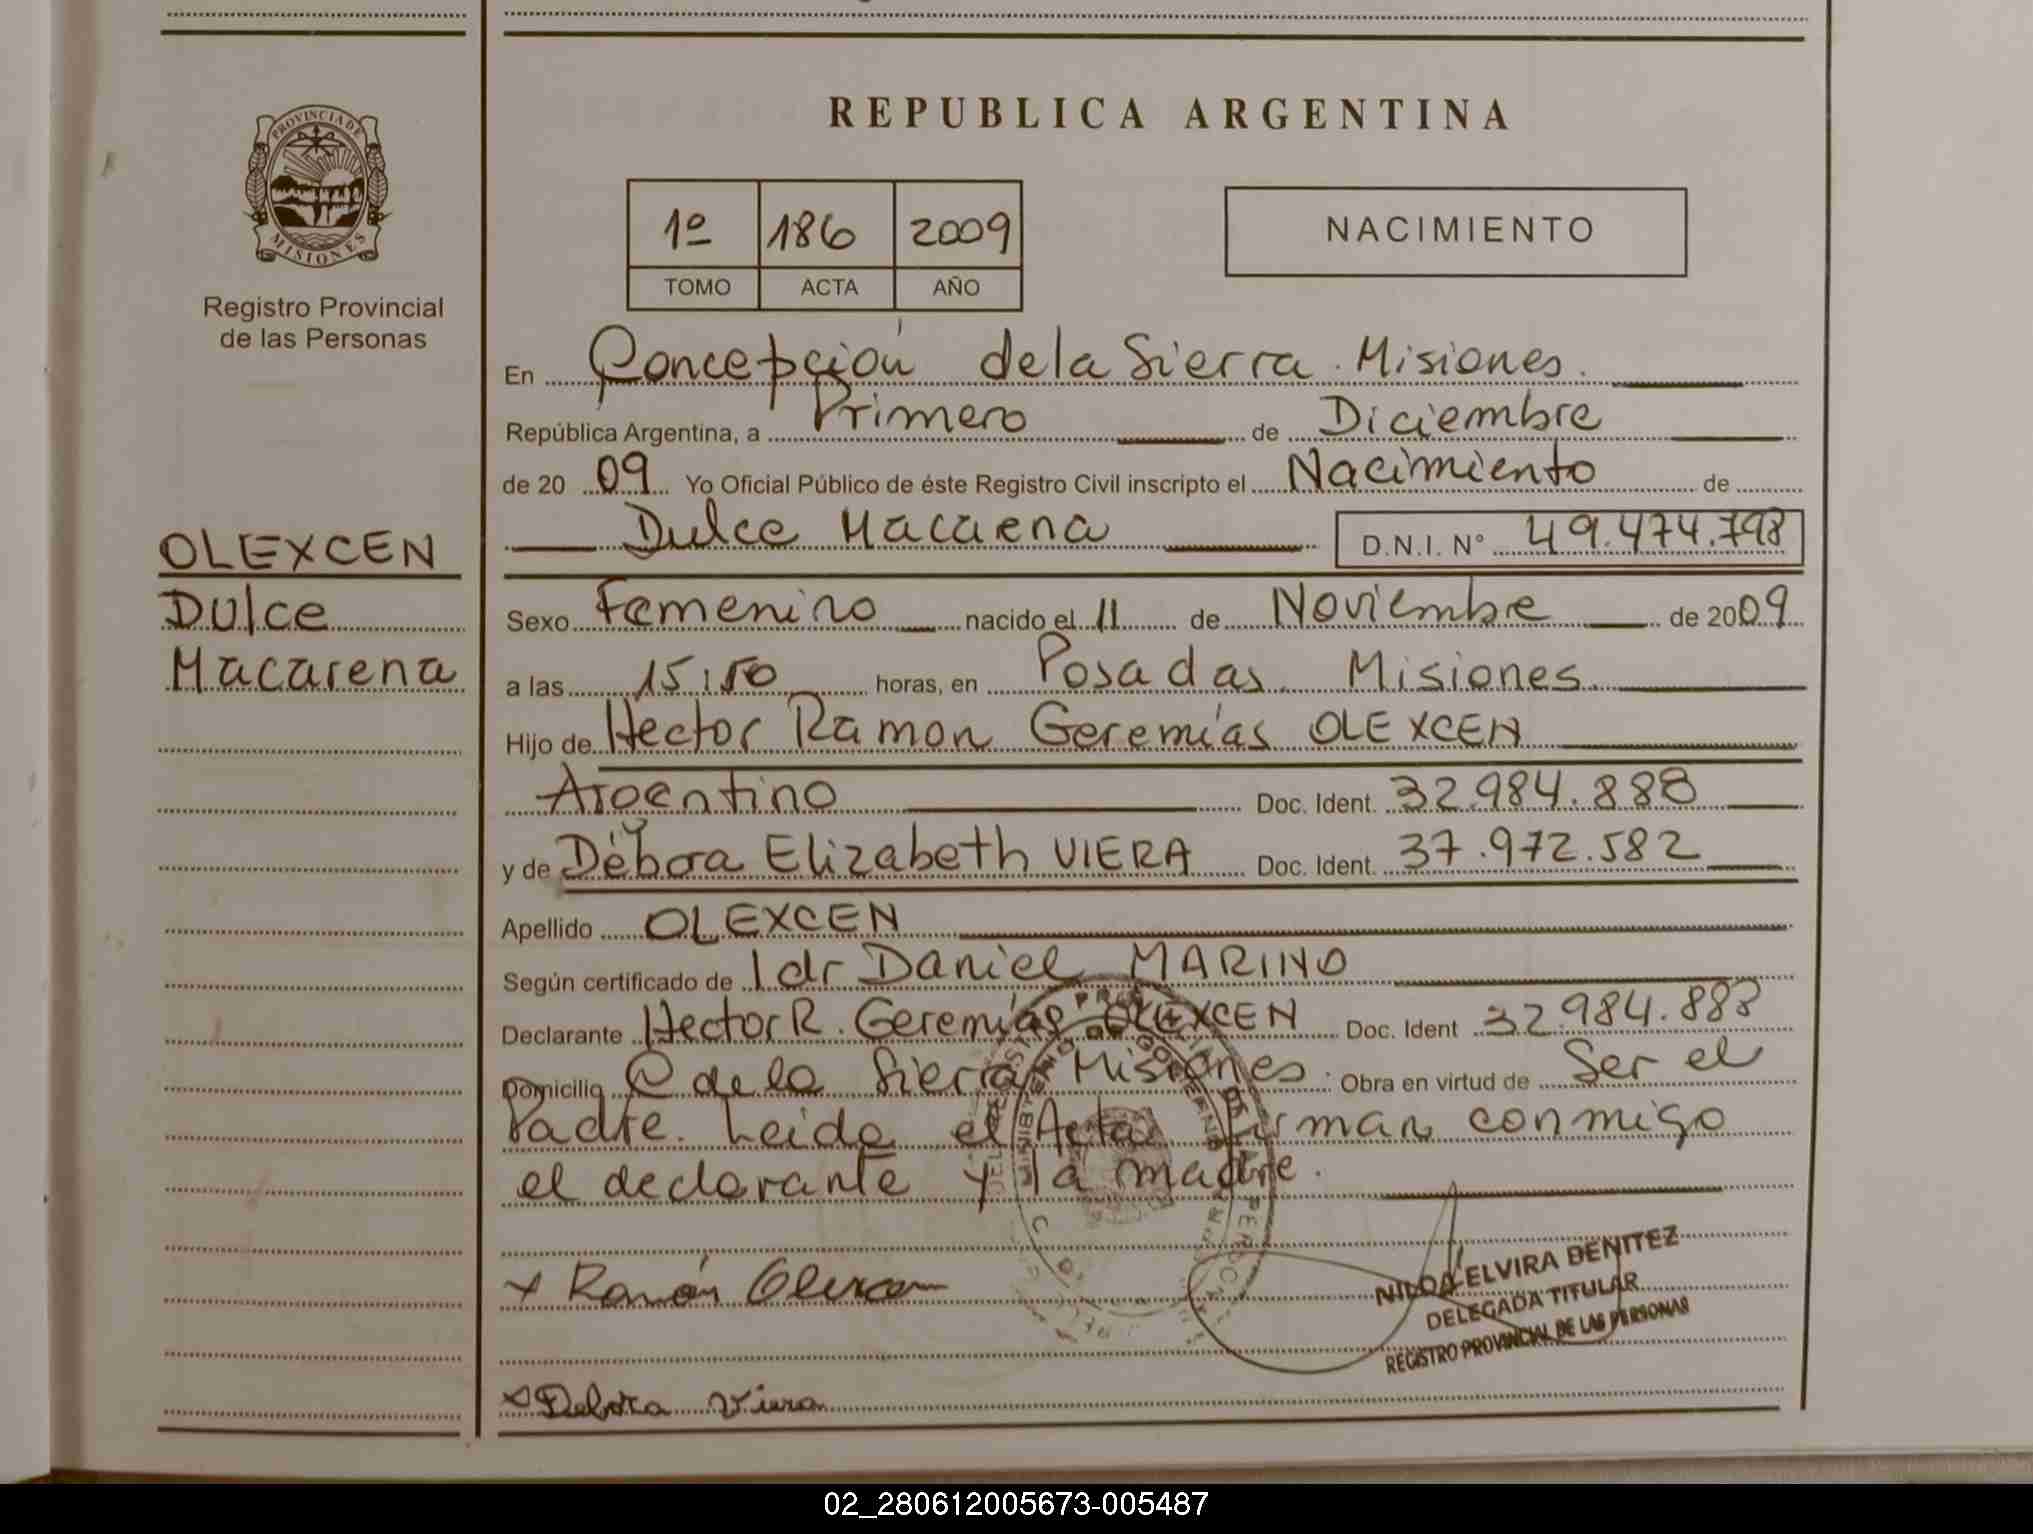 REPUBLICA ARGENTINA
PROVINCIA DE MISIONES
Registro Provincial
de las Personas
1º 186 2009
TOMO ACTA AÑO
NACIMIENTO
En Concepción de la Sierra. Misiones.
República Argentina, a Primero de Diciembre
de 2009 Yo Oficial Público de éste Registro Civil inscripto el Nacimiento de
Dulce Macarena D.N.I. Nº 49.474.798
OLEXCEN
Dulce
Macarena
Sexo Femenino nacido el 11 de Noviembre de 2009
a las 15:50 horas, en Posadas Misiones.
Hijo de Hector Ramon Geremías OLEXCEN
Argentino Doc. Ident. 32.984.888
y de Débora Elizabeth VIERA Doc. Ident. 37.972.582
Apellido OLEXCEN
Según certificado de dr Daniel MARINO
Declarante Hector R. Geremías OLEXCEN Doc. Ident 32.984.888
Domicilio C de la Sierra Misiones. Obra en virtud de Ser el
Padre. Leida el Acta firman conmigo
el declarante y la madre.
x Ramón Olexcen
NILDA ELVIRA BENITEZ
DELEGADA TITULAR
REGISTRO PROVINCIAL DE LAS PERSONAS
x Debora Viera
02_280612005673-005487